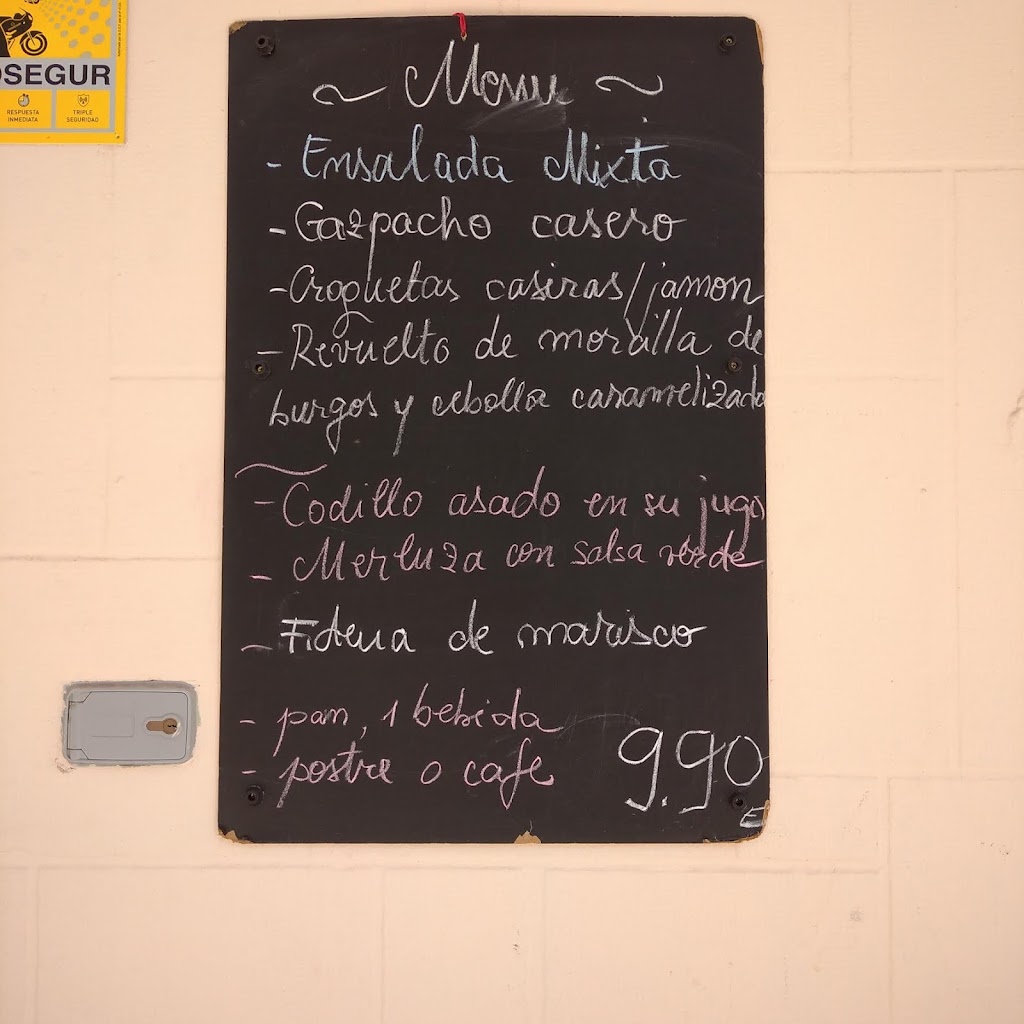 OSEGUR
RESPUESTA INMEDIATA
TRIPLE SEGURIDAD
~ Menu ~
- Ensalada Mixta
- Gazpacho casero
- Croquetas caseras/jamon
- Revuelto de morcilla de
burgos y cebolla caramelizada
- Codillo asado en su jugo
- Merluza con salsa verde
- Fideua de marisco
- pan, 1 bebida
- postre o cafe
9.90
E